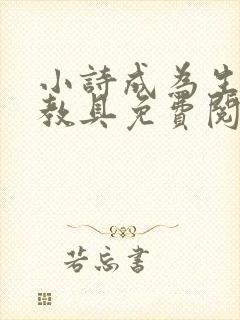 小詩成為生
教具免費閱
若忘書